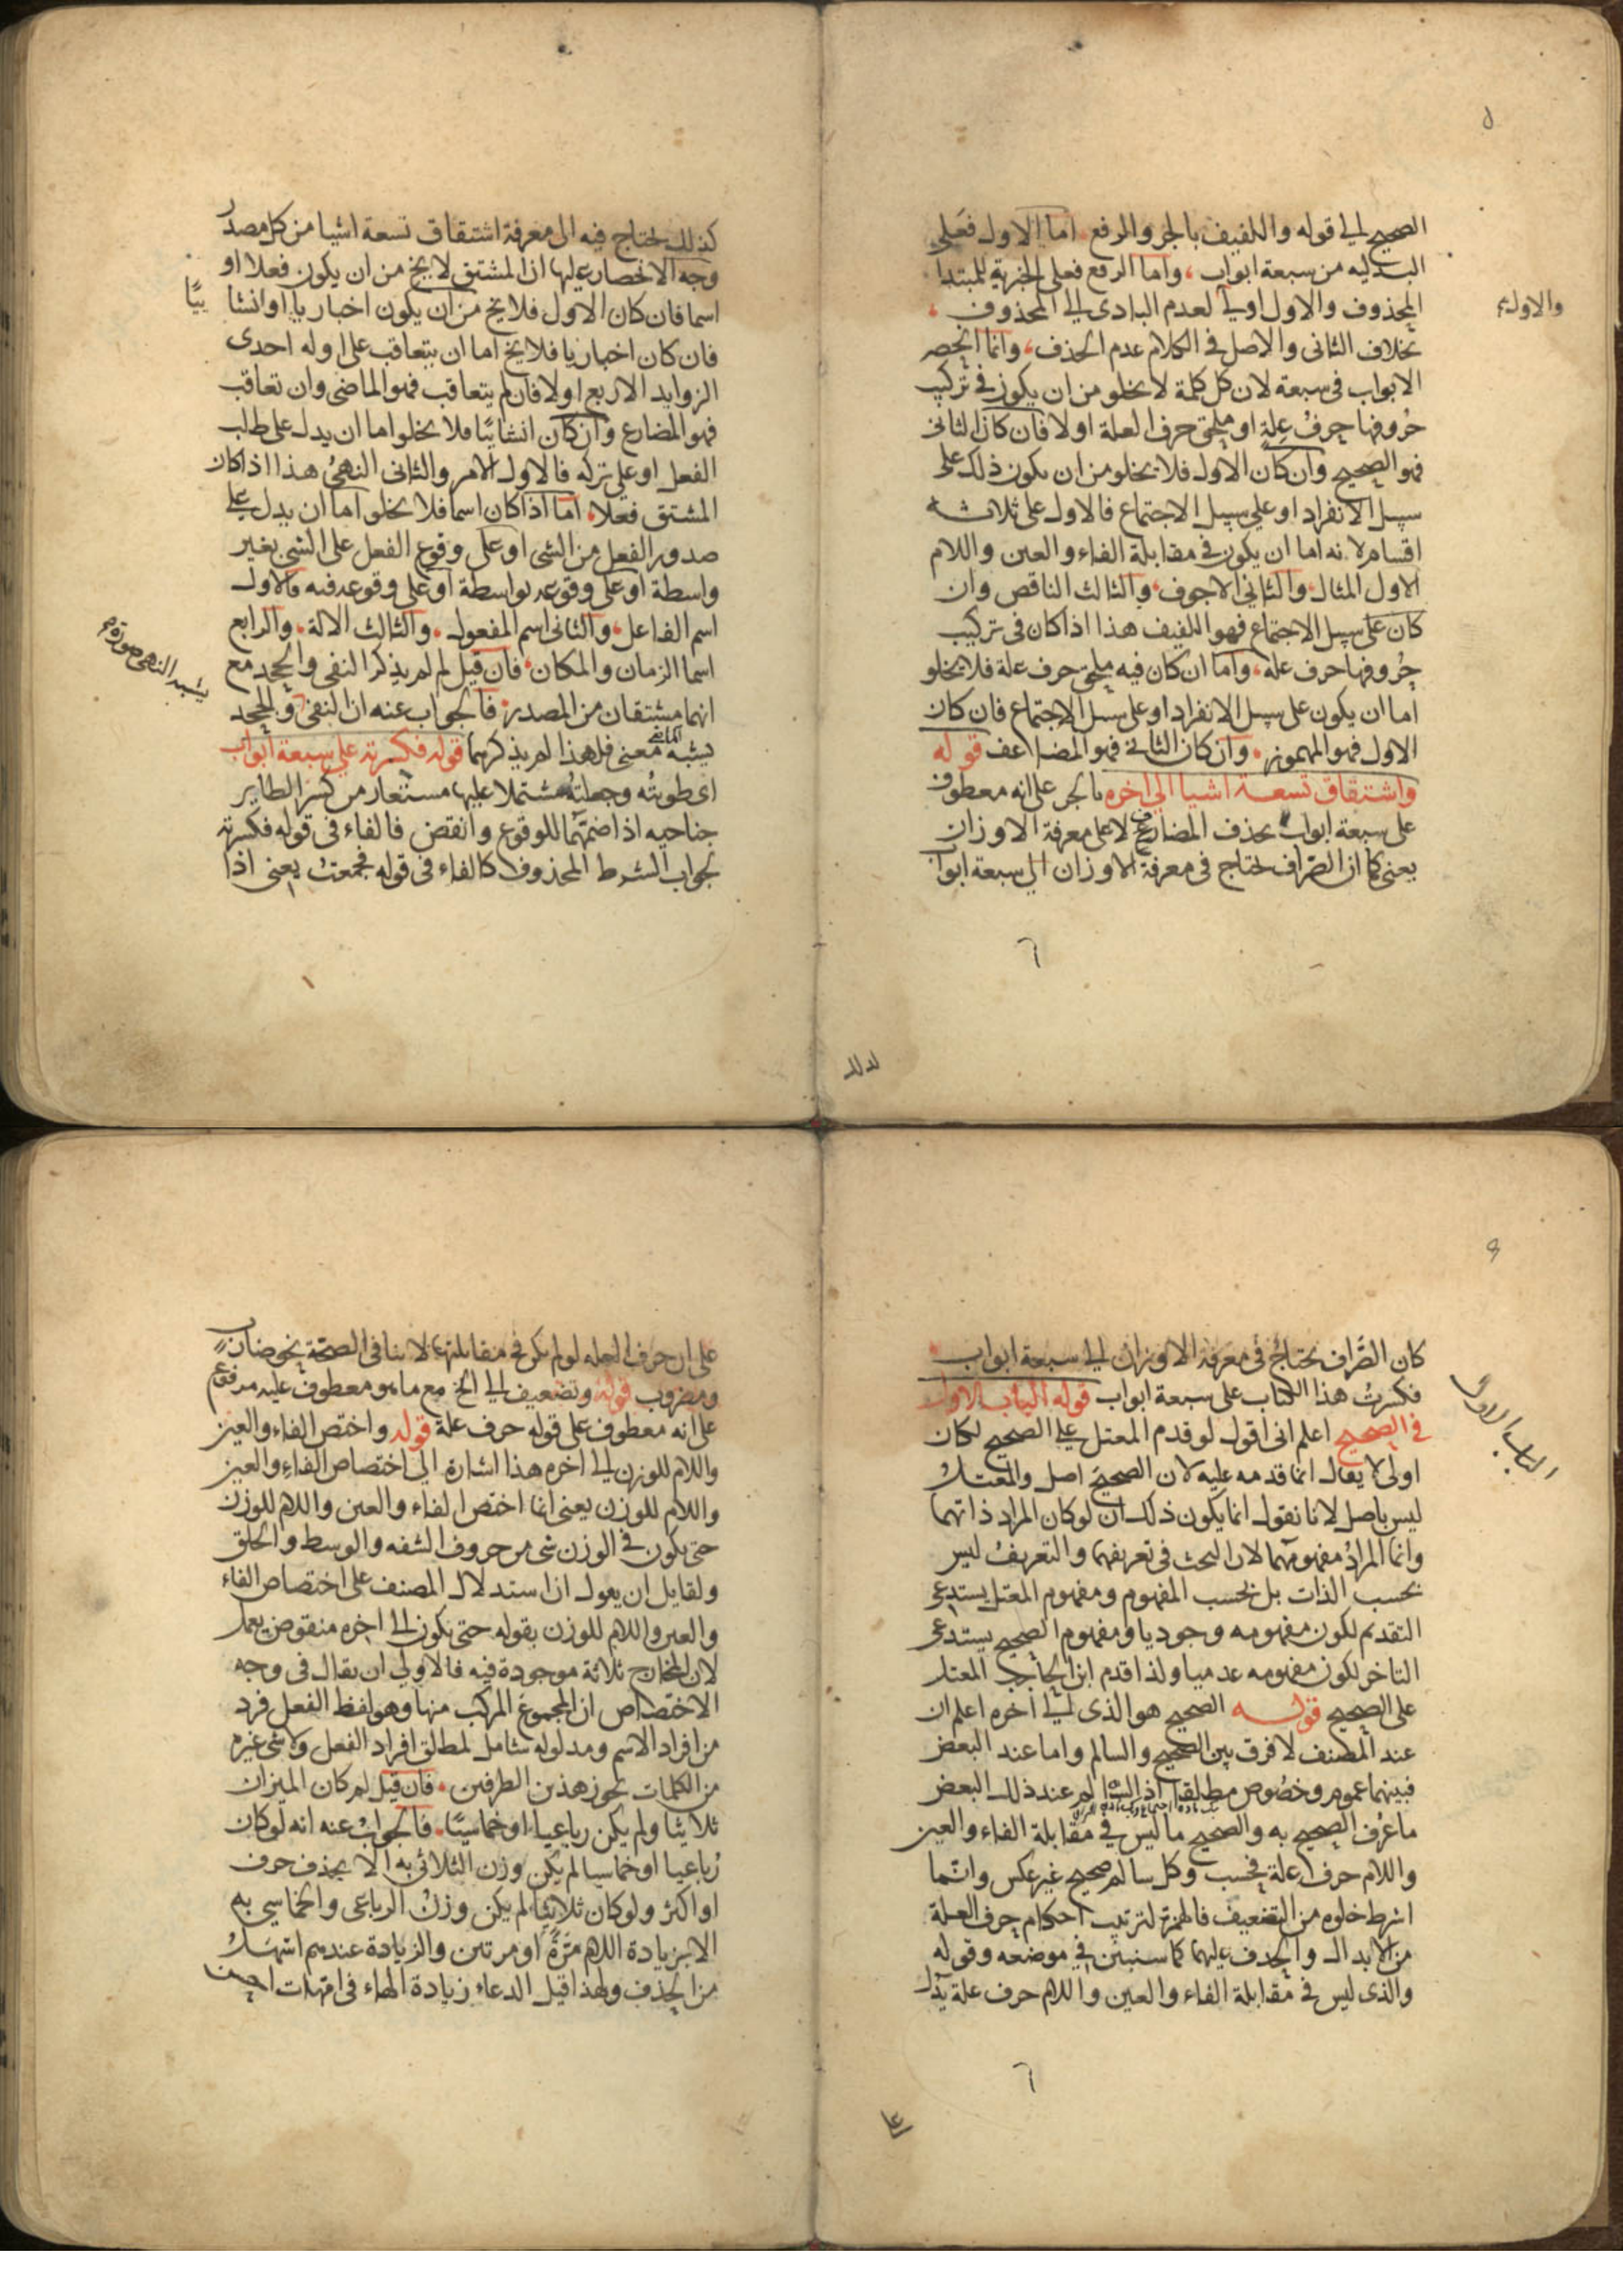 الصحيح الى قوله واللفيف بالجر والرفع اما الاول فعلى
البدليه من سبعة ابواب واما الرفع فعلى الخبرية للمبتدا
المحذوف والاول اولى لعدم البادى الى المحذوف
والاولى
بخلاف الثانى والاصل فى الكلام عدم الحذف وانما انحصر
الابواب فى سبعة لان كل كلمة لا يخلو من ان يكون فى تركيب
حروفها حرف علة او ملحق حرف العلة اولا فان كان الثانى
فهو الصحيح وان كان الاول فلا يخلو من ان يكون ذلك على
سبيل الانفراد او على سبيل الاجتماع فالاول على ثلاثة
اقسام لانه اما ان يكون فى مقابلة الفاء والعين واللام
الاول المثال والثانى الاجوف والثالث الناقص وان
كان على سبيل الاجتماع فهو اللفيف هذا اذا كان فى تركيب
حروفها حرف علة واما ان كان فيه ملحق حرف علة فلا يخلو
اما ان يكون على سبيل الانفراد او على سبيل الاجتماع فان كان
الاول فهو المهموز وان كان الثانى فهو المضاعف قوله
واشتقاق تسعة اشيا الى اخره بالجر على انه معطوف
على سبعة ابواب بحذف المضاف لا على معرفة الاوزان
يعنى كما ان الصراف يحتاج فى معرفة الاوزان الى سبعة ابواب
كذلك يحتاج فيه الى معرفة اشتقاق تسعة اشيا من كل مصدر
وجه الانحصار عليها ان المشتق لا يخ من ان يكون فعلا او
اسما فان كان الاول فلا يخ من ان يكون اخباريا او انشا
ئيًا
فان كان اخباريا فلا يخ اما ان يتعاقب على اوله احدى
الزوايد الاربع اولا فان لم يتعاقب فهو الماضى وان تعاقب
فهو المضارع وان كان انشائيًا فلا يخلو اما ان يدل على طلب
الفعل او على تركه فالاول الامر والثانى النهى هذا اذا كان
المشتق فعلا اما اذا كان اسما فلا يخلو اما ان يدل على
صدور الفعل من الشى او على وقوع الفعل على الشى بغير
واسطة او على وقوعه بواسطة او على وقوعه فيه فالاول
اسم الفاعل والثانى اسم المفعول والثالث الالة والرابع
اسما الزمان والمكان فان قيل لم لم يذكر النفى والجحد مع
يشبه النهى صورة
انهما مشتقان من المصدر فالجواب عنه ان النفى والجحد
يشبه الماضى معنى فلهذا لم يذكرهما قوله فكسرته على سبعة ابواب
اى طويته وجعلته مشتملا عليها مستعار من كسر الطاير
جناحيه اذا ضمهما للوقوع وانقض فالفاء فى قوله فكسرته
لجواب الشرط المحذوف كالفاء فى قوله فجمعت يعنى اذا
كان الصراف يحتاج فى معرفة الاوزان الى سبعة ابواب
فكسرت هذا الكتاب على سبعة ابواب قوله الباب الاول
الباب الاول
فى الصحيح اعلم انى اقول لو قدم المعتل على الصحيح لكان
اولى لا يقال انما قدمه عليه لان الصحيح اصل والمعتل
ليس باصل لانا نقول انما يكون ذلك ان لو كان المراد ذاتهما
وانما المراد مفهومهما لان البحث فى تعريفهما والتعريف ليس
بحسب الذات بل بحسب المفهوم ومفهوم المعتل يستدعى
التقديم لكون مفهومه وجوديا ومفهوم الصحيح يستدعى
التاخر لكون مفهومه عدميا ولذا قدم ابن الحاجب المعتل
على الصحيح قوله الصحيح هو الذى الى اخره اعلم ان
عند المصنف لا فرق بين الصحيح والسالم واما عند البعض
فبينهما عموم وخصوص مطلقا اذ السالم عند ذلك البعض
ما عرف الصحيح به والصحيح ما ليس فى مقابلة الفاء والعين
واللام حرف علة فحسب وكل سالم صحيح غير عكس وانما
اشرط خلوه من التضعيف فالهمزة لترتيب احكام حرف العلة
من الابدال والحذف عليهما كما سنبين فى موضعه وقوله
والذى ليس فى مقابلة الفاء والعين واللام حرف علة يدل
على ان حرف العله لو لم يكن فى مقابلتها لا ينافى الصحة نحو ضارب
ومضروب قوله وتضعيف الى الخ مع ما هو معطوف عليه مرفوع
على انه معطوف على قوله حرف علة قوله واختص الفاء والعين
واللام للوزن الى اخره هذا اشارة الى اختصاص الفاء والعين
واللام للوزن يعنى انما اختص الفاء والعين واللام للوزن
حتى يكون فى الوزن شى من حروف الشفه والوسط والحلق
ولقايل ان يقول ان استدلال المصنف على اختصاص الفاء
والعين واللام للوزن بقوله حتى يكون الى اخره منقوض بعمل
لان المخارج ثلاثة موجودة فيه فالاولى ان يقال فى وجه
الاختصاص ان المجموع المركب منها وهو لفظ الفعل فرد
من افراد الاسم ومدلوله شامل لمطلق افراد الفعل ولا شى غيره
من الكلمات يحوز هذين الطرفين فان قيل لم كان الميزان
ثلاثيا ولم يكن رباعيا او خماسيًا فالجواب عنه انه لو كان
رباعيا او خماسيا لم يكن وزن الثلاثى به الا بحذف حرف
او اكثر ولو كان ثلاثيا لم يكن وزن الرباعى والخماسي به
الا بزيادة اللام مرة او مرتين والزيادة عندهم اسهل
من الحذف ولهذا قيل الدعاء زيادة الهاء فى امهات احسن